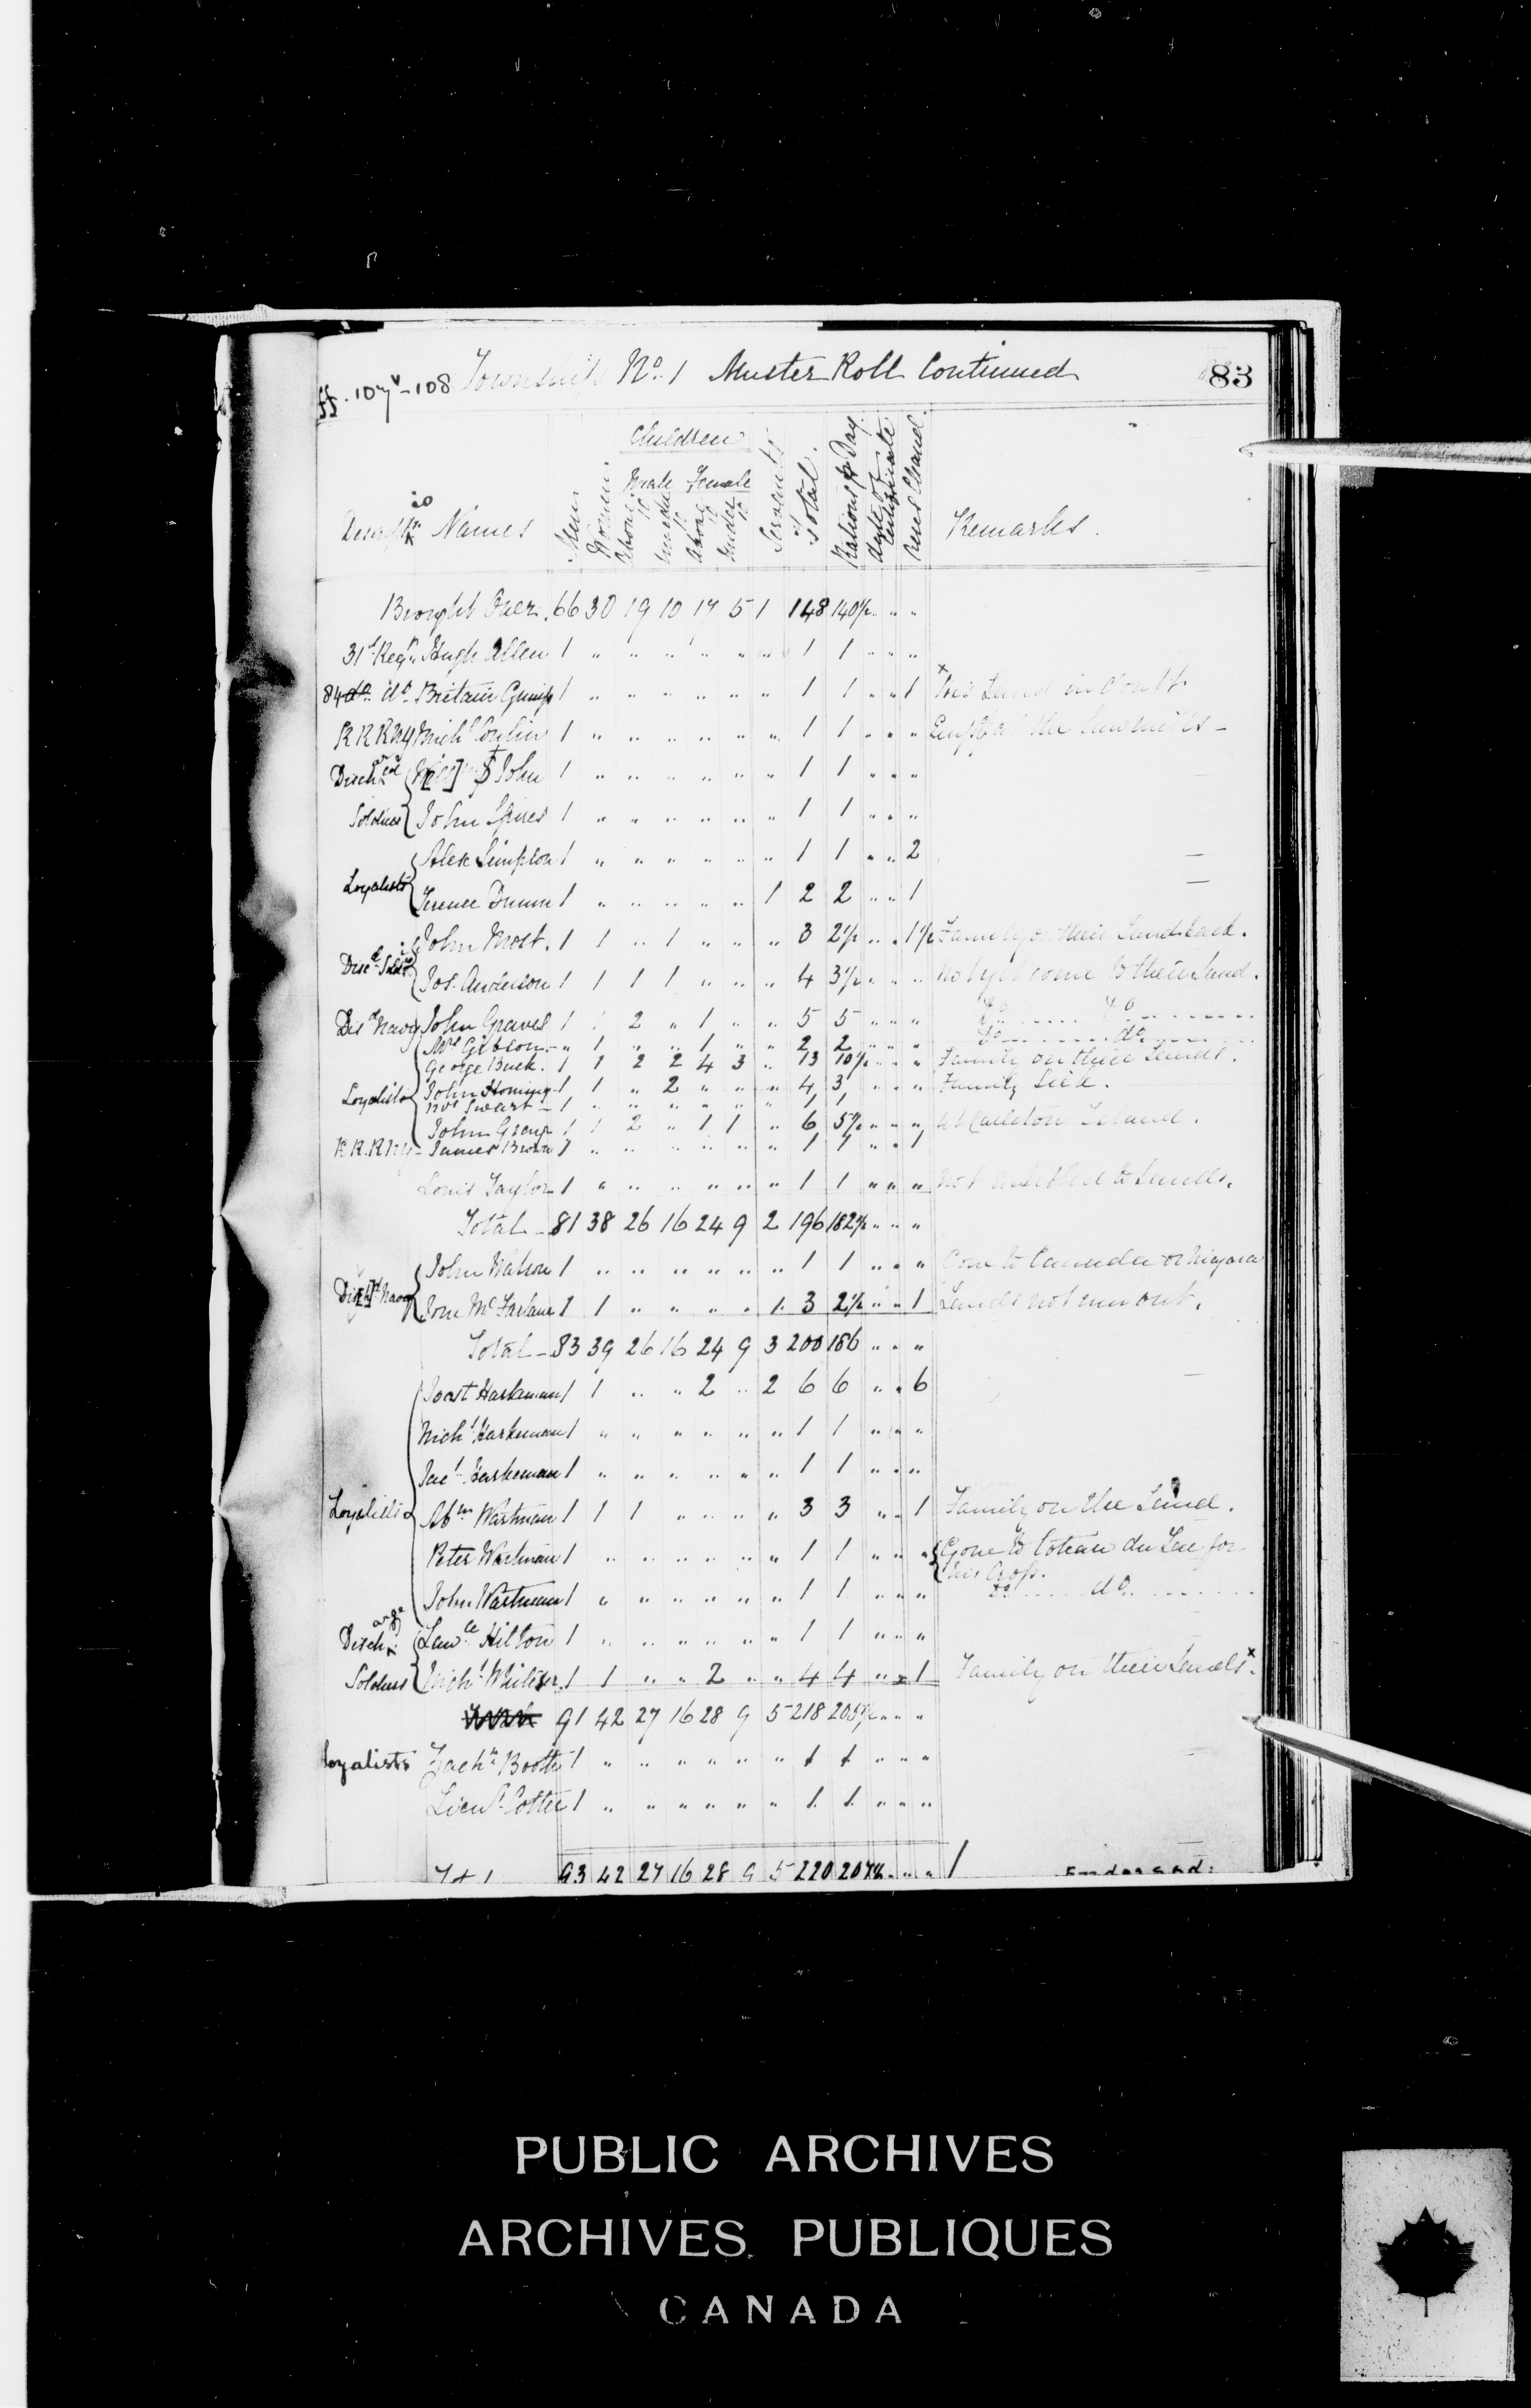 ff. 107v-108 Township No. 1 Muster Roll Continued 83
Children
Male Female
Descriptn Names Men Women above 10 under 10 above 10 under 10 Servants Total Rations p Day Acres Cleared Remarks.
Brought Over. 66 30 19 10 17 5 1 148 140½ " " "
31st Regt. Hugh Allen 1 " " " " " " 1 1 " " "
84 do. do. Britain 1 " " " " " " 1 1 " " 1 His Land in doubt
RRRNY Michl Conlin 1 " " " " " " 1 1 " " " the Sawmills -
Discharged [Will]m St John 1 " " " " " " 1 1 " " "
Soldiers John Spires 1 " " " " " " 1 1 " " "
Alex Simpson 1 " " " " " " 1 1 " " 2
Loyalists Terence Dunn 1 " " " " " 1 2 2 " " 1
John Mott. 1 1 " 1 " " " 3 2½ " " 1½ Family on their Land
Discd Soldrs Jos. Anderson 1 1 1 1 " " " 4 3½ " " " Not yet come to their Land.
Disd Navy John Graves 1 1 2 " 1 " " 5 5 " " " do do
Mrs Gibson - " 1 " " 1 " " 2 2 " " " do do
George Buck. 1 1 2 2 4 3 " 13 10½ " " " Family on their Lands.
Loyalists John Horning 1 1 " 2 " " " 4 3 " " " Family Sick.
Nos Swart - 1 " " " " " " 1 1
John Group 1 1 2 " 1 1 " 6 5½ " " " at Carleton Island.
R.R.R.N.Y - James Brown 1 " " " " " " 1 1 " " 1
Louis Taylor 1 " " " " " " 1 1 " " " Not entitled to Lands.
Total - 81 38 26 16 24 9 2 196 182½ " " "
John Watson 1 " " " " " " 1 1 " " " Gone to Canada or Niagara
Dis[d] Navy Jom McFarlane 1 1 " " " " 1 3 2½ " " 1 Lands not run out.
Total - 83 39 26 16 24 9 3 200 186 " " "
Joost Harkaman 1 1 " " 2 " 2 6 6 " " 6
Michl Harkeman 1 " " " " " " 1 1 " " "
Jacl Harkeman 1 " " " " " " 1 1 " " "
Loyalists Abm Wartman 1 1 1 " " " " 3 3 " " 1 Family on the Land.
Peter Wartman 1 " " " " " " 1 1 " " " Gone to Coteau du Lac for
his Crop.
John Wartman 1 " " " " " " 1 1 " " " do do
Discharge Lawce Hilton 1 " " " " " " 1 1 " " "
Soldiers Michl 1 1 " " 2 " " 4 4 " " 1 Family on their Lands.
91 42 27 16 28 9 5 218 205½ " " "
Loyalists Zachh Booth 1 " " " " " " 1 1 " " "
Lieut Cotter 1 " " " " " " 1 1 " " "
Total 93 42 27 16 28 9 5 220 207½ " " " Endorsed:
PUBLIC ARCHIVES
ARCHIVES PUBLIQUES
CANADA